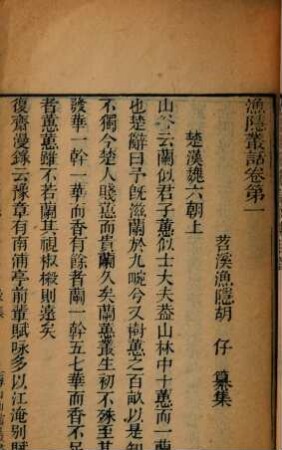 漁隱叢話卷第一
苕溪漁隱胡仔纂集
楚漢魏六朝上
山谷云蘭似君子蕙似士大夫蓋山林中十蕙而一蘭
也楚辭曰予旣滋蘭於九畹今又樹蕙之百畝以是知
不獨今楚人賤蕙而貴蘭久矣蘭蕙叢生初不殊至其
發華一幹一華而香有餘者蘭一幹五七華而香不足
者蕙蕙雖不若蘭其視椒樧則遠矣
復齋漫錄云豫章有南浦亭前輩賦咏多以江淹別賦